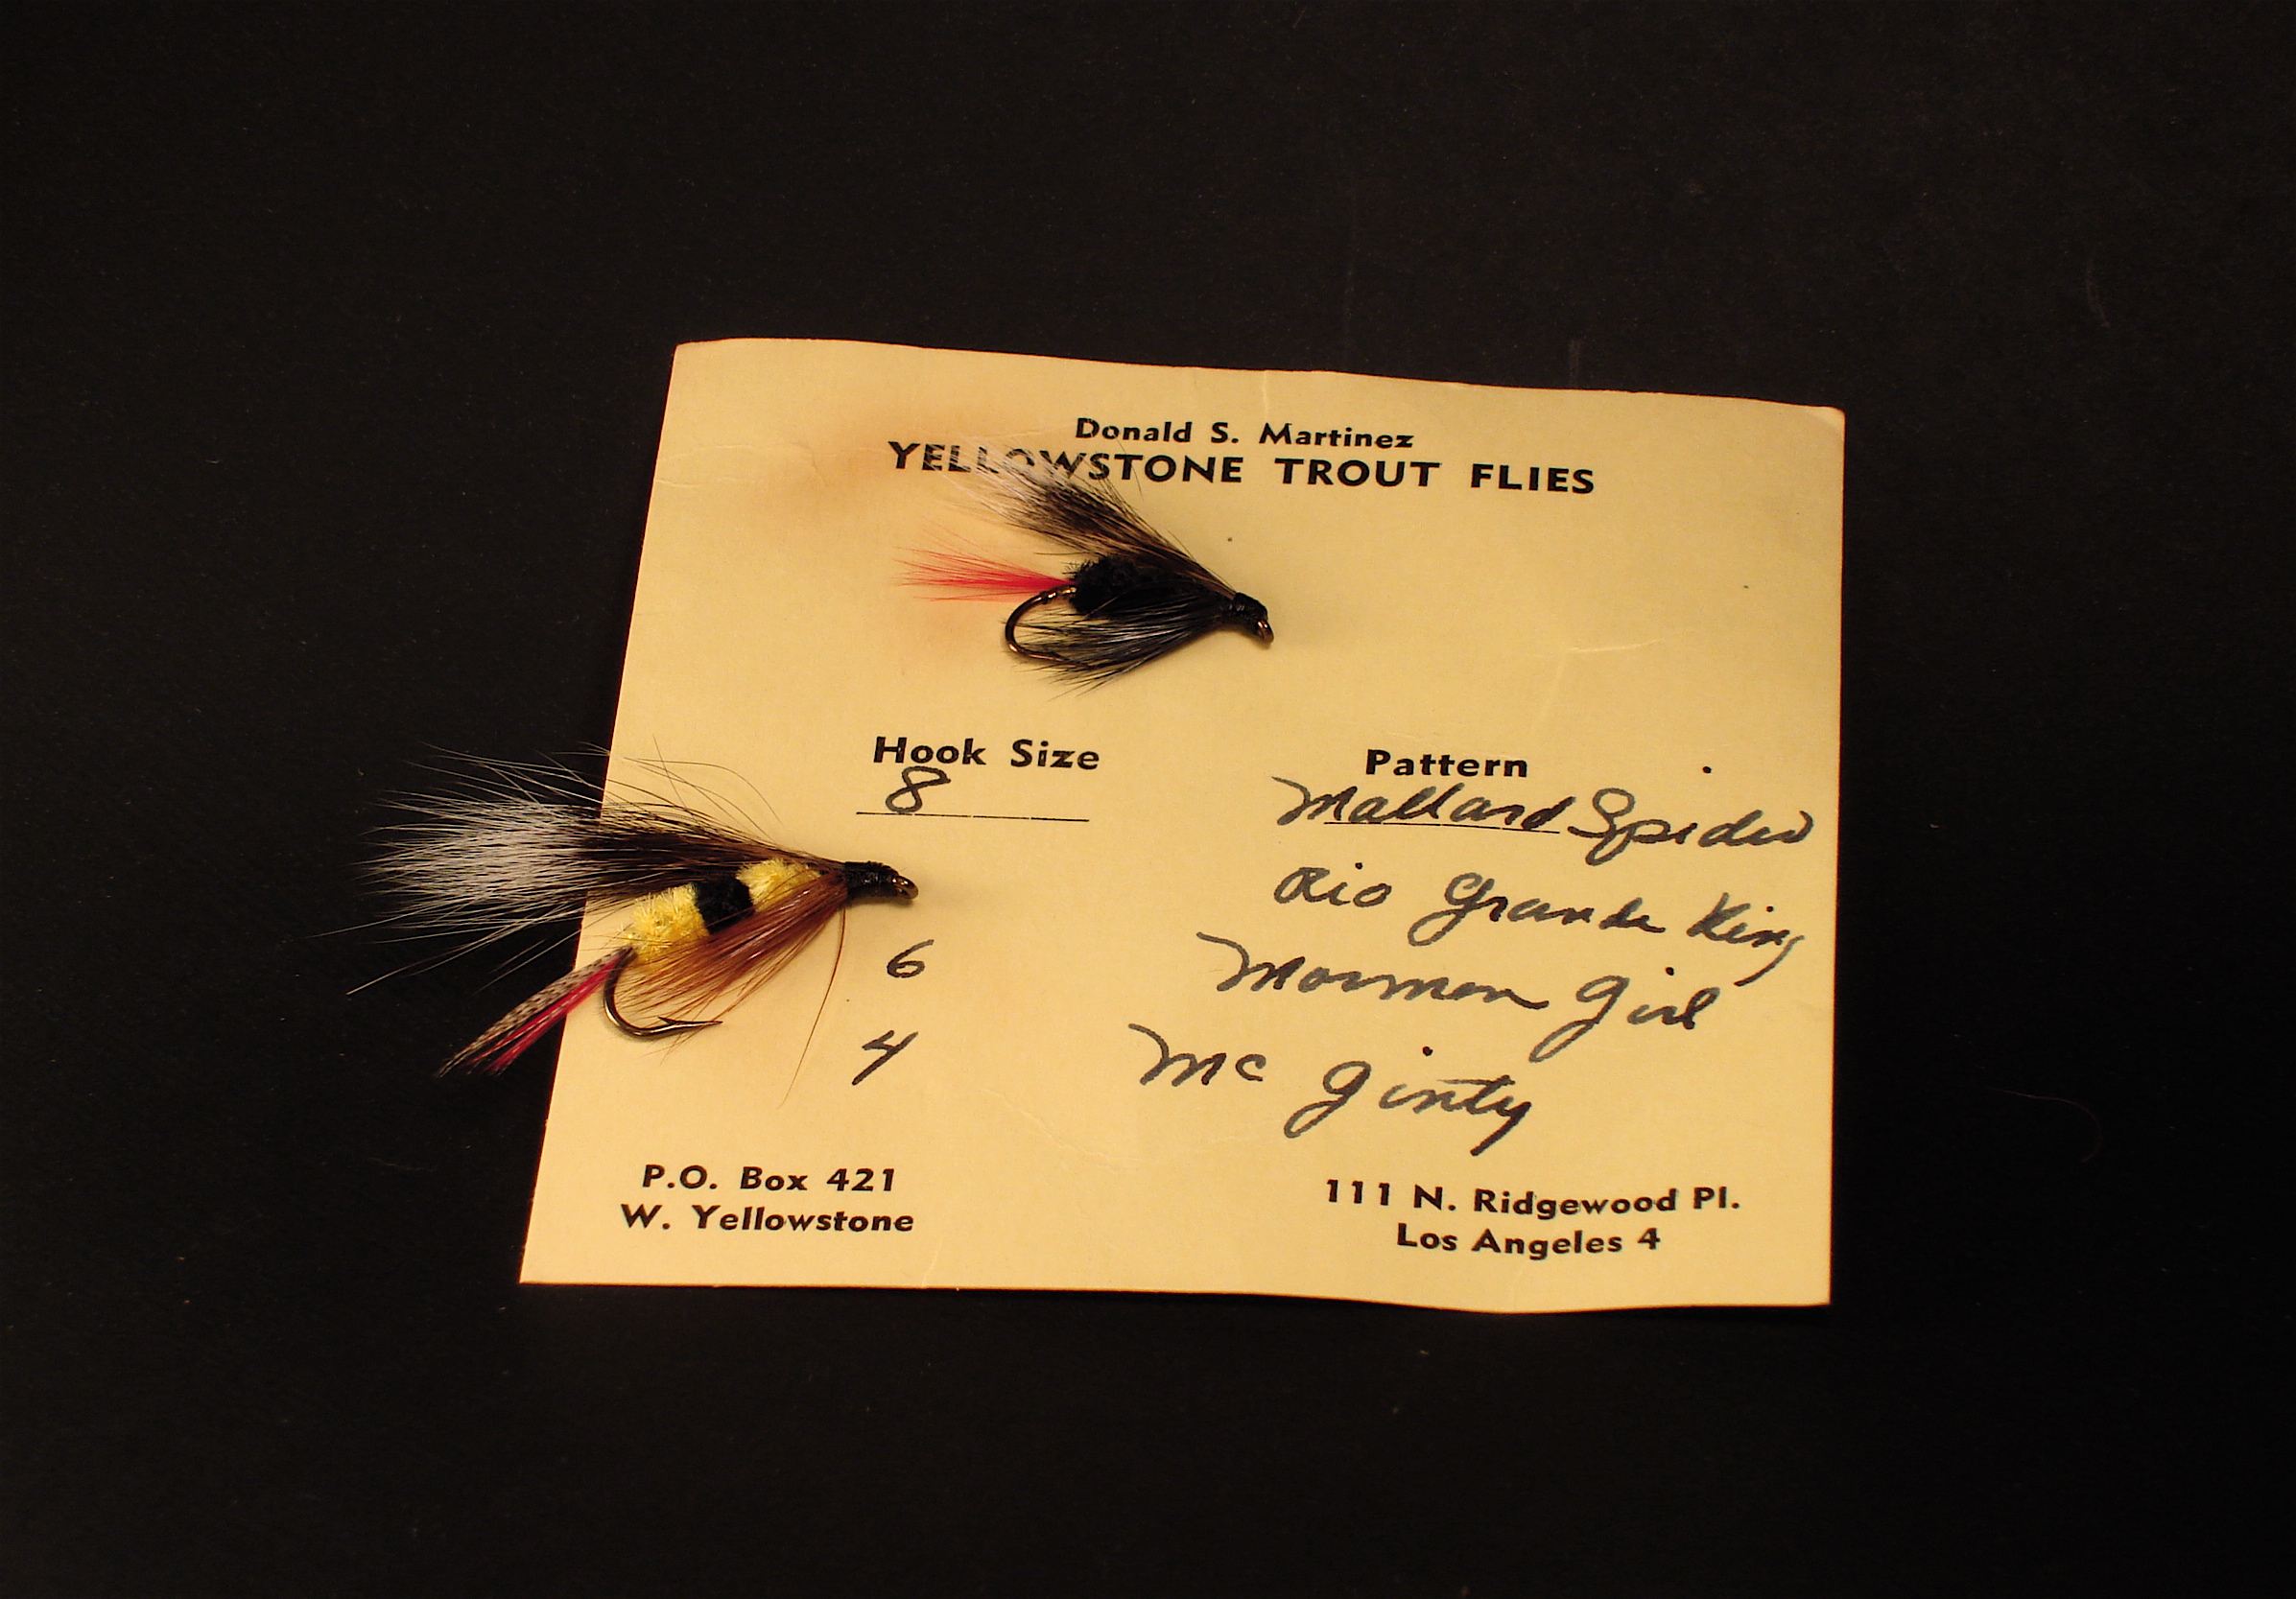 Donald S. Martinez
YELLOWSTONE TROUT FLIES
Hook Size Pattern
8 Mallard Spider
Rio Grande King
6 Mormon Girl
4 Mc Ginty
P.O. Box 421
W. Yellowstone
111 N. Ridgewood Pl.
Los Angeles 4